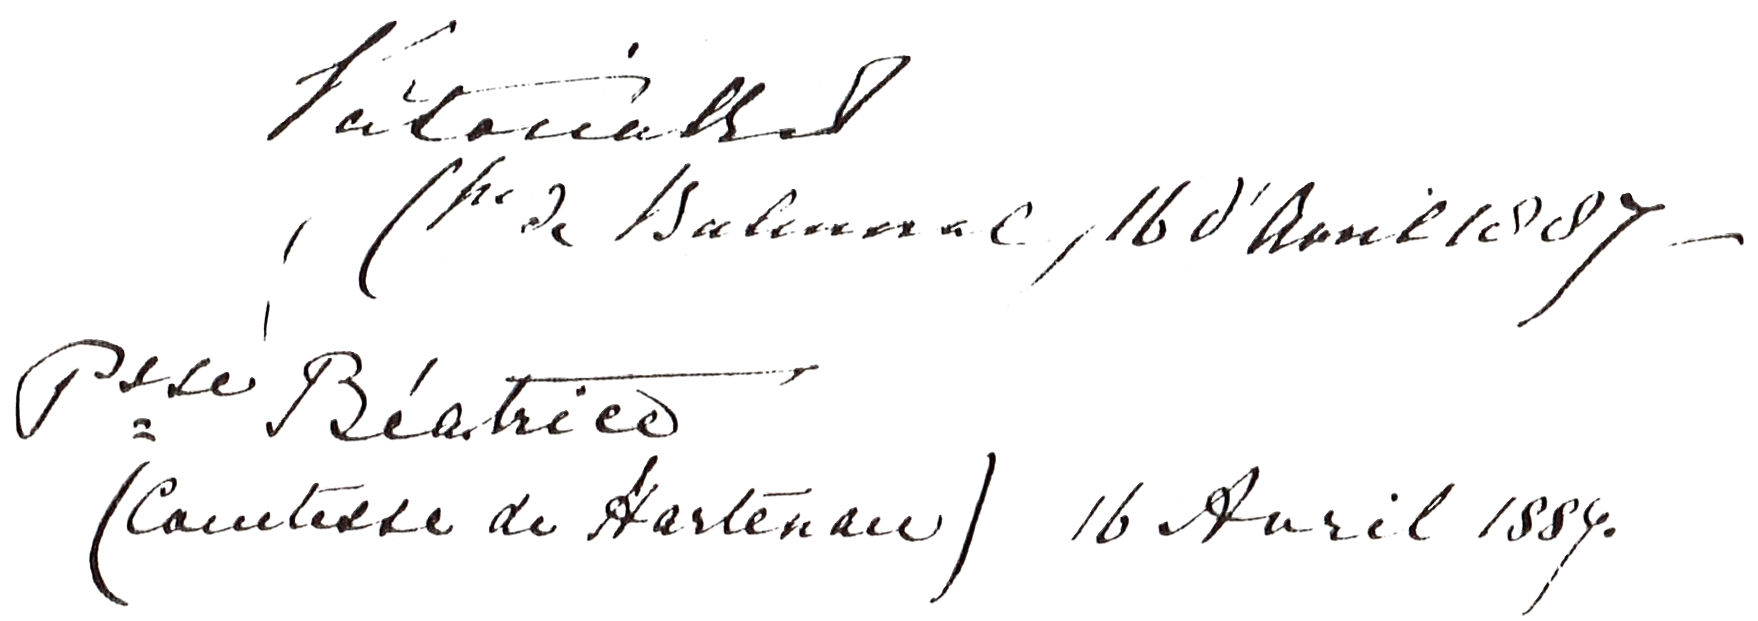 Victoria R I
(Css de Balmoral, 16 d'Avril 1887 –
Psse Béatrice
(Comtesse de Hartenau) 16 Avril 1887.